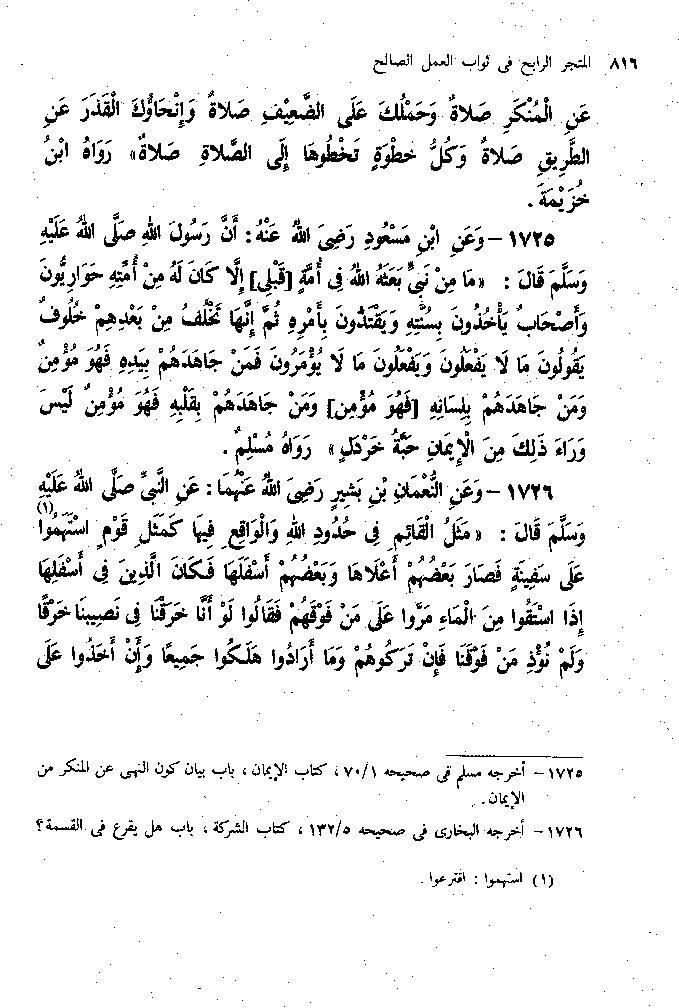 ٨١٦ المتجر الرابح فى ثواب العمل الصالح
عَنِ الْمُنْكَرِ صَلاةٌ وَحَمْلُكَ عَلَى الضَّعِيفِ صَلاةٌ وَإِنْحَاؤُكَ الْقَذَرَ عَنِ
الطَّرِيقِ صَلاةٌ وَكُلُّ خطْوَةٍ تَخْطُوهَا إِلَى الصَّلاةِ صَلاةٌ» رَوَاهُ ابْنُ
خُزَيْمَةَ .
١٧٢٥ - وَعَنِ ابْنِ مَسْعُودٍ رَضِىَ اللهُ عَنْهُ : أَنَّ رَسُولَ اللهِ صَلَّى اللهُ عَلَيْهِ
وَسَلَّمَ قَالَ : «مَا مِنْ نَبِىٍّ بَعَثَهُ اللهُ فِى أُمَّةٍ [قَبْلِى] إِلَّا كَانَ لَهُ مِنْ أُمَّتِهِ حَوَارِيُّونَ
وَأَصْحَابٌ يَأْخُذُونَ بِسُنَّتِهِ وَيَقْتَدُونَ بِأَمْرِهِ ثُمَّ إِنَّهَا تَخْلُفُ مِنْ بَعْدِهِمْ خُلُوفٌ
يَقُولُونَ مَا لَا يَفْعَلُونَ وَيَفْعَلُونَ مَا لَا يُؤْمَرُونَ فَمَنْ جَاهَدَهُمْ بِيَدِهِ فَهُوَ مُؤْمِنٌ
وَمَنْ جَاهَدَهُمْ بِلِسَانِهِ [فَهُوَ مُؤْمِن] وَمَنْ جَاهَدَهُمْ بِقَلْبِهِ فَهُوَ مُؤْمِنٌ لَيْسَ
وَرَاءَ ذَلِكَ مِنَ الْإِيمَانِ حَبَّةُ خَرْدَلٍ» رَوَاهُ مُسْلِمٌ .
١٧٢٦ - وَعَنِ النُّعْمَانِ بْنِ بَشِيرٍ رَضِىَ اللهُ عَنْهُمَا : عَنِ النَّبِىِّ صَلَّى اللهُ عَلَيْهِ
وَسَلَّمَ قَالَ : «مَثَلُ الْقَائِمِ فِى حُدُودِ اللهِ وَالْوَاقِعِ فِيهَا كَمَثَلِ قَوْمٍ اسْتَهَمُوا(١)
عَلَى سَفِينَةٍ فَصَارَ بَعْضُهُمْ أَعْلَاهَا وَبَعْضُهُمْ أَسْفَلَهَا فَكَانَ الَّذِينَ فِى أَسْفَلِهَا
إِذَا اسْتَقُوا مِنَ الْمَاءِ مَرَّوا عَلَى مَنْ فَوْقَهُمْ فَقَالُوا لَوْ أَنَّا خَرَقْنَا فِى نَصِيبِنَا خَرْقًا
وَلَمْ نُؤْذِ مَنْ فَوْقَنَا فَإِنْ تَرَكُوهُمْ وَمَا أَرَادُوا هَلَكُوا جَمِيعًا وَإِنْ أَخَذُوا عَلَى
١٧٢٥ - أخرجه مسلم فى صحيحه ٧٠/١ ، كتاب الإيمان ، باب بيان كون النهى عن المنكر من
الإيمان .
١٧٢٦ - أخرجه البخارى فى صحيحه ١٣٢/٥ ، كتاب الشركة ، باب هل يقرع فى القسمة ؟
(١) استهموا : اقترعوا .